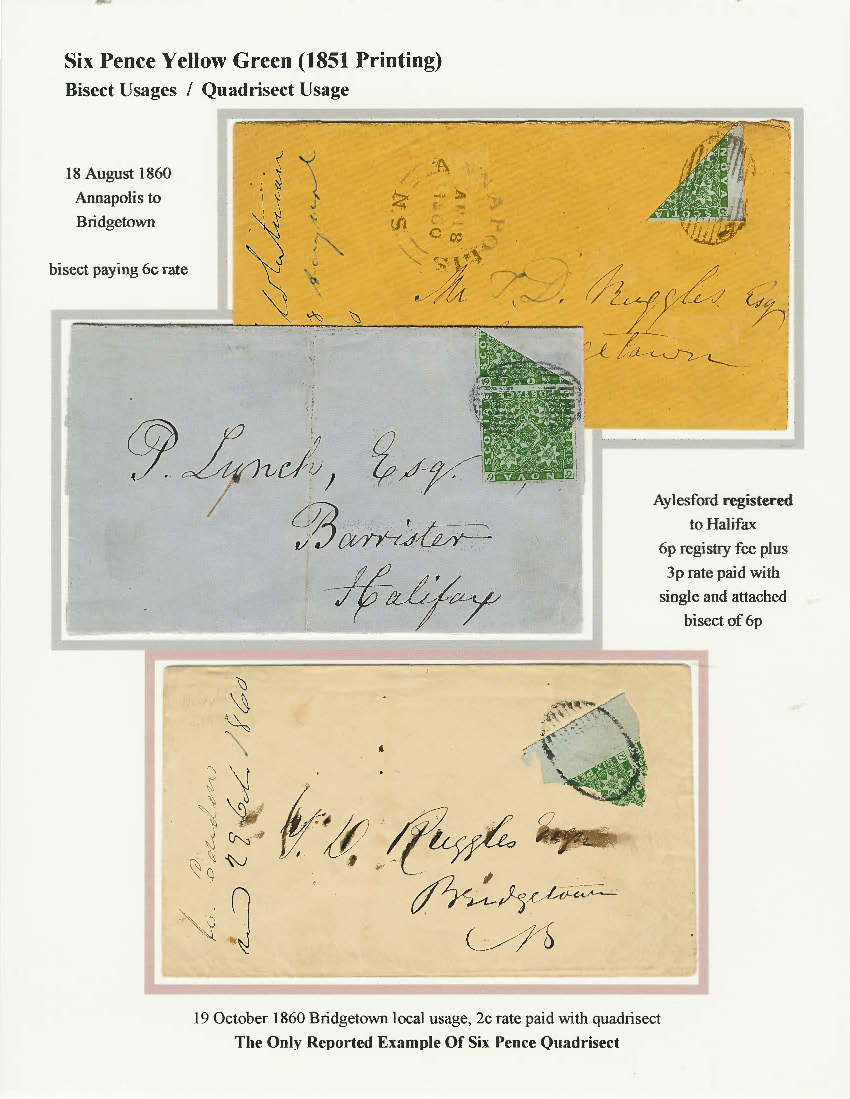 Six Pence Yellow Green (1851 Printing)
Bisect Usages / Quadrisect Usage
18 August 1860
Annapolis to
Bridgetown
bisect paying 6c rate
NAPOLIS
AP 18
1860
N.S.
NOVA
SCOTIA
Mr T. D. Ruggles Esq
etown
P. Lynch, Esq.
Barrister
Halifax
NOVA
Aylesford registered
to Halifax
6p registry fee plus
3p rate paid with
single and attached
bisect of 6p
1860
T. D. Ruggles Esqr
Bridgetown
19 October 1860 Bridgetown local usage, 2c rate paid with quadrisect
The Only Reported Example Of Six Pence Quadrisect